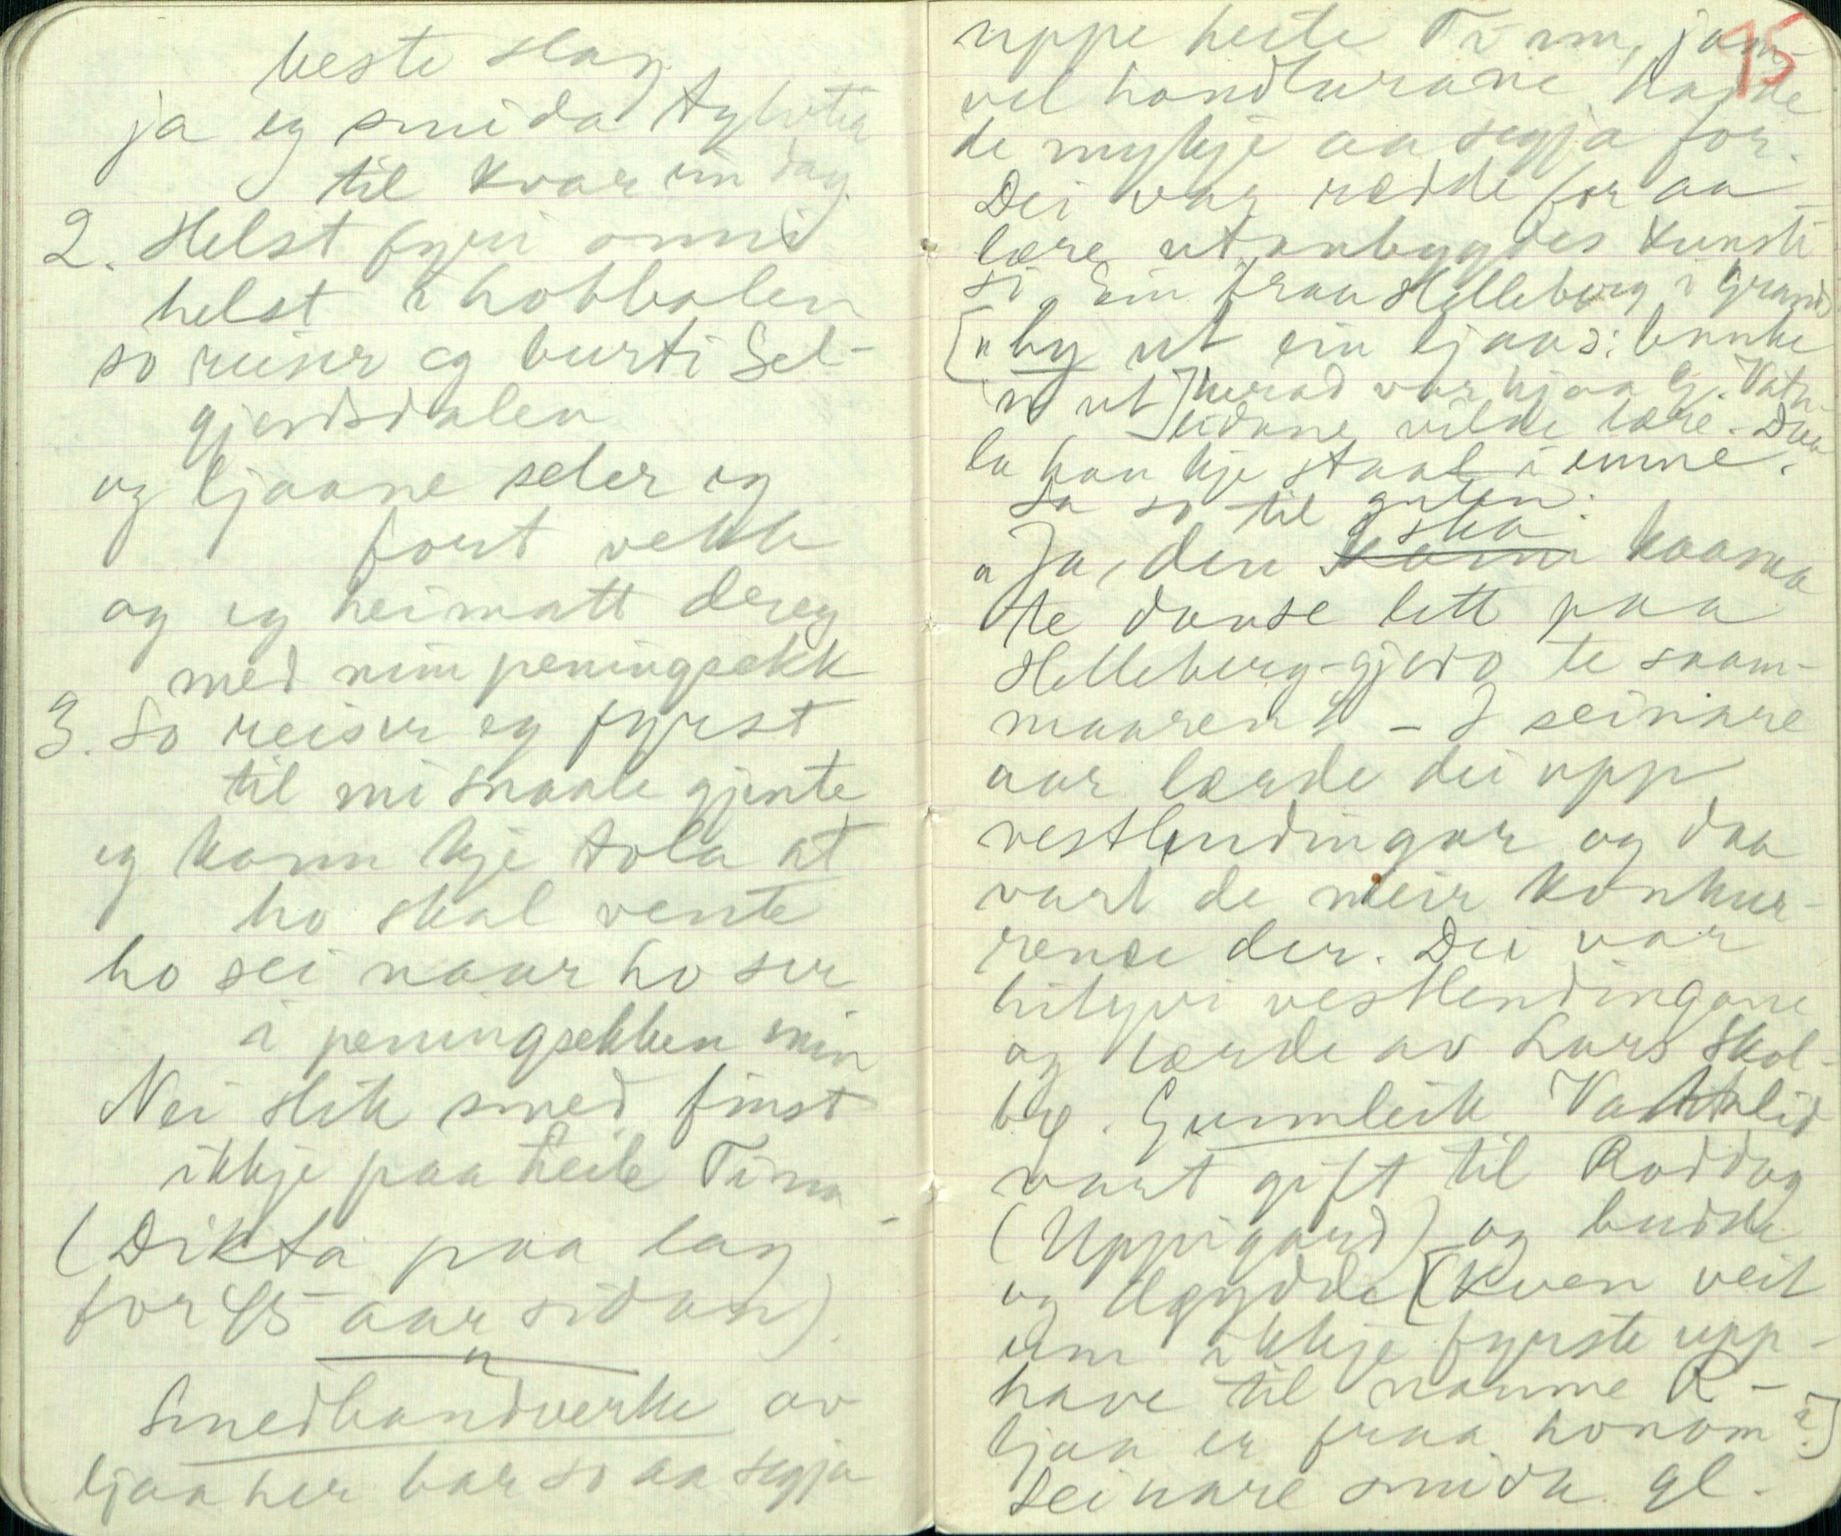 beste slag
ja eg smida tylvter
til kvar ein dag.
2. Helst fyri onni
helst i hobbalen
so reiser eg burti Sel-
gjordsdalen
og ljaane seler eg
fort vekk
og eg heimatt dreg
med min peningsekk
3. So reiser eg fyrst
til mi snaale gjente
eg kann kje tola at
ho skal vente
ho sei naar ho ser
i peningsekken min
Nei slik smed finst
ikkje paa heile Tinn
(Dikta paa lag
for 45 aar sidan).
Smedhandverke av
ljaa her bar so aa segja
15
uppe heile Tinn, jam-
vel handlarane hadde
de mykje aa segja for.
Dei var redde for aa
lære utanbygdes kunsti
si. Ein fraa Helleberg i Grans
["by ut ein ljaa": banke
n ut] herad var hjaa G. Vatn-
lidane vilde lære. Daa
la han kje staal i emne.
Sa so til guten:
"Ja, den ska kaama
te danse lett paa
Helleberg-gjero te saam-
maaren". - I seinare
aar lærde dei upp
vestlendingar og daa
vart de meir konkur-
rense der. Dei var
hityvi vestlendingane
og lærde av Lars Skol-
bg. Gunnleik Vatnlid
vart gift til Roddag
(Uppigard) og budde
og døydde [Kven veit
um ikkje fyrste upp-
have til namne R-
ljaa er fraa honom?]
Seinare smida gl.